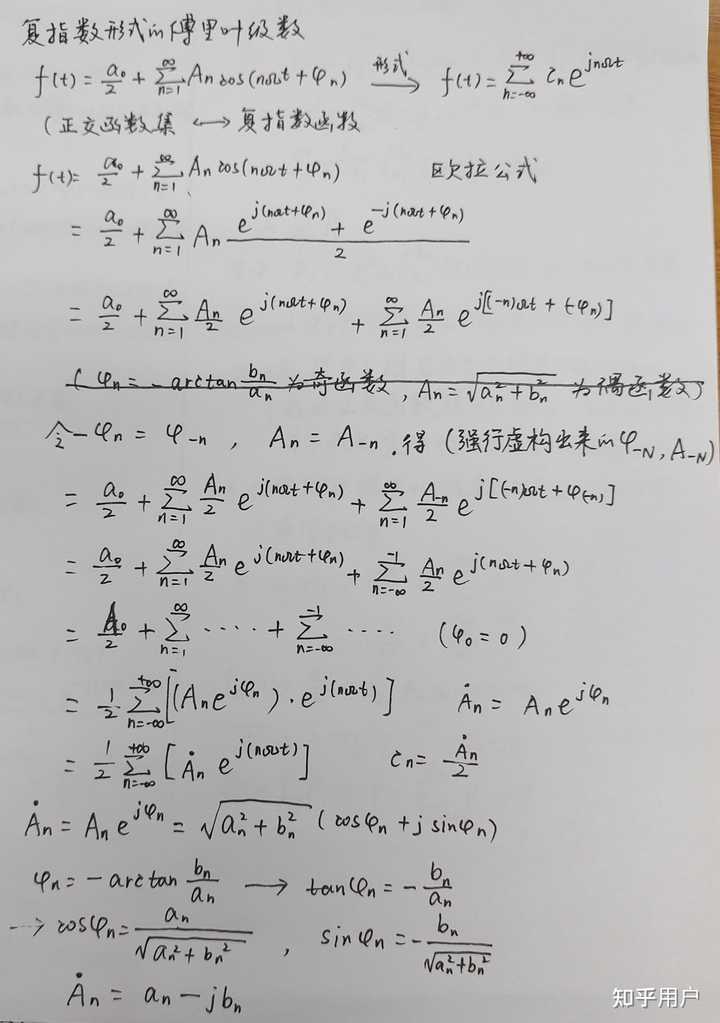 复指数形式的傅里叶级数
f(t) = a₀/2 + ∑_{n=1}^{∞} Aₙ cos(nΩt + φₙ) —形式→ f(t) = ∑_{n=-∞}^{+∞} cₙ e^{jnΩt}
(正交函数集 ⟷ 复指数函数
f(t) = a₀/2 + ∑_{n=1}^{∞} Aₙ cos(nΩt + φₙ) 欧拉公式
= a₀/2 + ∑_{n=1}^{∞} Aₙ (e^{j(nΩt+φₙ)} + e^{-j(nΩt+φₙ)})/2
= a₀/2 + ∑_{n=1}^{∞} Aₙ/2 e^{j(nΩt+φₙ)} + ∑_{n=1}^{∞} Aₙ/2 e^{j[(-n)Ωt + (-φₙ)]}
( φₙ = -arctan bₙ/aₙ 为奇函数, Aₙ = √(aₙ² + bₙ²) 为偶函数)
令 -φₙ = φ₋ₙ , Aₙ = A₋ₙ . 得 (强行虚构出来的 φ_{-N}, A_{-N})
= a₀/2 + ∑_{n=1}^{∞} Aₙ/2 e^{j(nΩt+φₙ)} + ∑_{n=1}^{∞} A₋ₙ/2 e^{j[(-n)Ωt + φ_{(-n)}]}
= a₀/2 + ∑_{n=1}^{∞} Aₙ/2 e^{j(nΩt+φₙ)} + ∑_{n=-∞}^{-1} Aₙ/2 e^{j(nΩt+φₙ)}
= A₀/2 + ∑_{n=1}^{∞} ···· + ∑_{n=-∞}^{-1} ···· (φ₀ = 0)
= 1/2 ∑_{n=-∞}^{+∞} [(Aₙe^{jφₙ}) · e^{j(nΩt)}] Ȧₙ = Aₙe^{jφₙ}
= 1/2 ∑_{n=-∞}^{+∞} [Ȧₙ e^{j(nΩt)}] cₙ = Ȧₙ/2
Ȧₙ = Aₙe^{jφₙ} = √(aₙ² + bₙ²) (cosφₙ + j sinφₙ)
φₙ = -arctan bₙ/aₙ ⟶ tanφₙ = -bₙ/aₙ
⇢ cosφₙ = aₙ/√(aₙ² + bₙ²) , sinφₙ = -bₙ/√(aₙ² + bₙ²)
Ȧₙ = aₙ - jbₙ
知乎用户